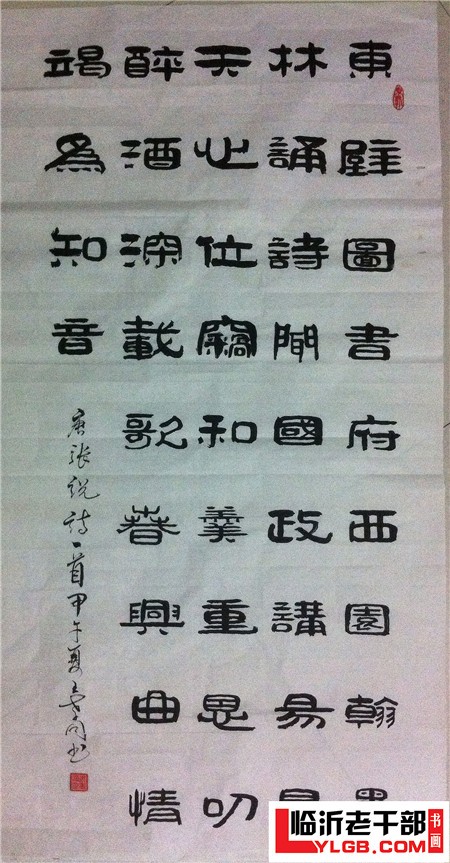 東壁圖書府西園翰墨
林誦詩聞國政講易見
天心位竊和羹重恩叨
醉酒深載歌春興曲情
竭為知音
唐張說詩一首甲午夏書
临沂老干部书画
LYLGB.COM